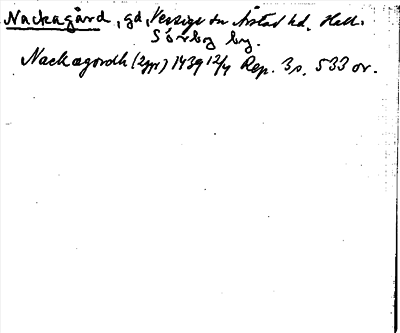 Nackagård, gd, Vessige sn Årstad hd. Hall.
Sörby by.
Nackagordh (2ggr) 1439 12/4 Rep. 3 s. 533 or.